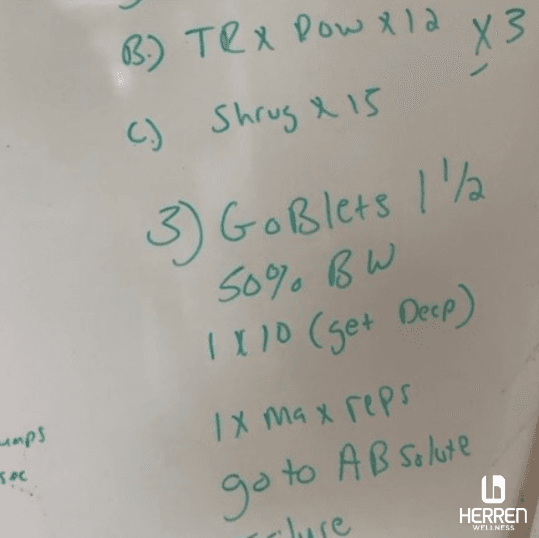 B.) TRX Row x12 x3
C.) Shrug x 15
3) GoBlets 1 1/2
50% BW
1 x 10 (get Deep)
1 x max reps
go to ABsolute
umps
sec
HERREN
WELLNESS